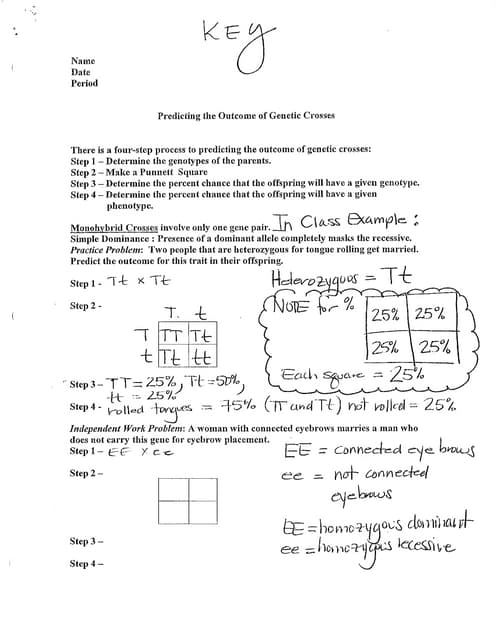 KEY
Name
Date
Period
Predicting the Outcome of Genetic Crosses
There is a four-step process to predicting the outcome of genetic crosses:
Step 1 – Determine the genotypes of the parents.
Step 2 – Make a Punnett Square
Step 3 – Determine the percent chance that the offspring will have a given genotype.
Step 4 – Determine the percent chance that the offspring will have a given
phenotype.
In Class Example:
Monohybrid Crosses involve only one gene pair.
Simple Dominance : Presence of a dominant allele completely masks the recessive.
Practice Problem: Two people that are heterozygous for tongue rolling get married.
Predict the outcome for this trait in their offspring.
Heterozygous = Tt
Step 1 - Tt x Tt
NOTE for %
25% 25%
25% 25%
Each square = 25%
Step 2 -
T. t
T TT Tt
t Tt tt
Step 3 – TT = 25%, Tt = 50%,
tt = 25%
Step 4 - rolled tongues = 75% (TT and Tt) not rolled = 25%.
Independent Work Problem: A woman with connected eyebrows marries a man who
does not carry this gene for eyebrow placement.
Step 1 – EE x ee
EE = connected eye brows
Step 2 –
ee = not connected
eyebrows
EE = homozygous dominant
ee = homozygous recessive
Step 3 –
Step 4 –